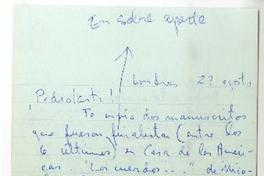 En sobre aparte
Londres 23 agosto
¡Pedrolastra!
Te envío dos manuscritos
que fueron finalistas (entre los
6 últimos) en Casa de las Améri-
cas. "Los cuerdos...." de